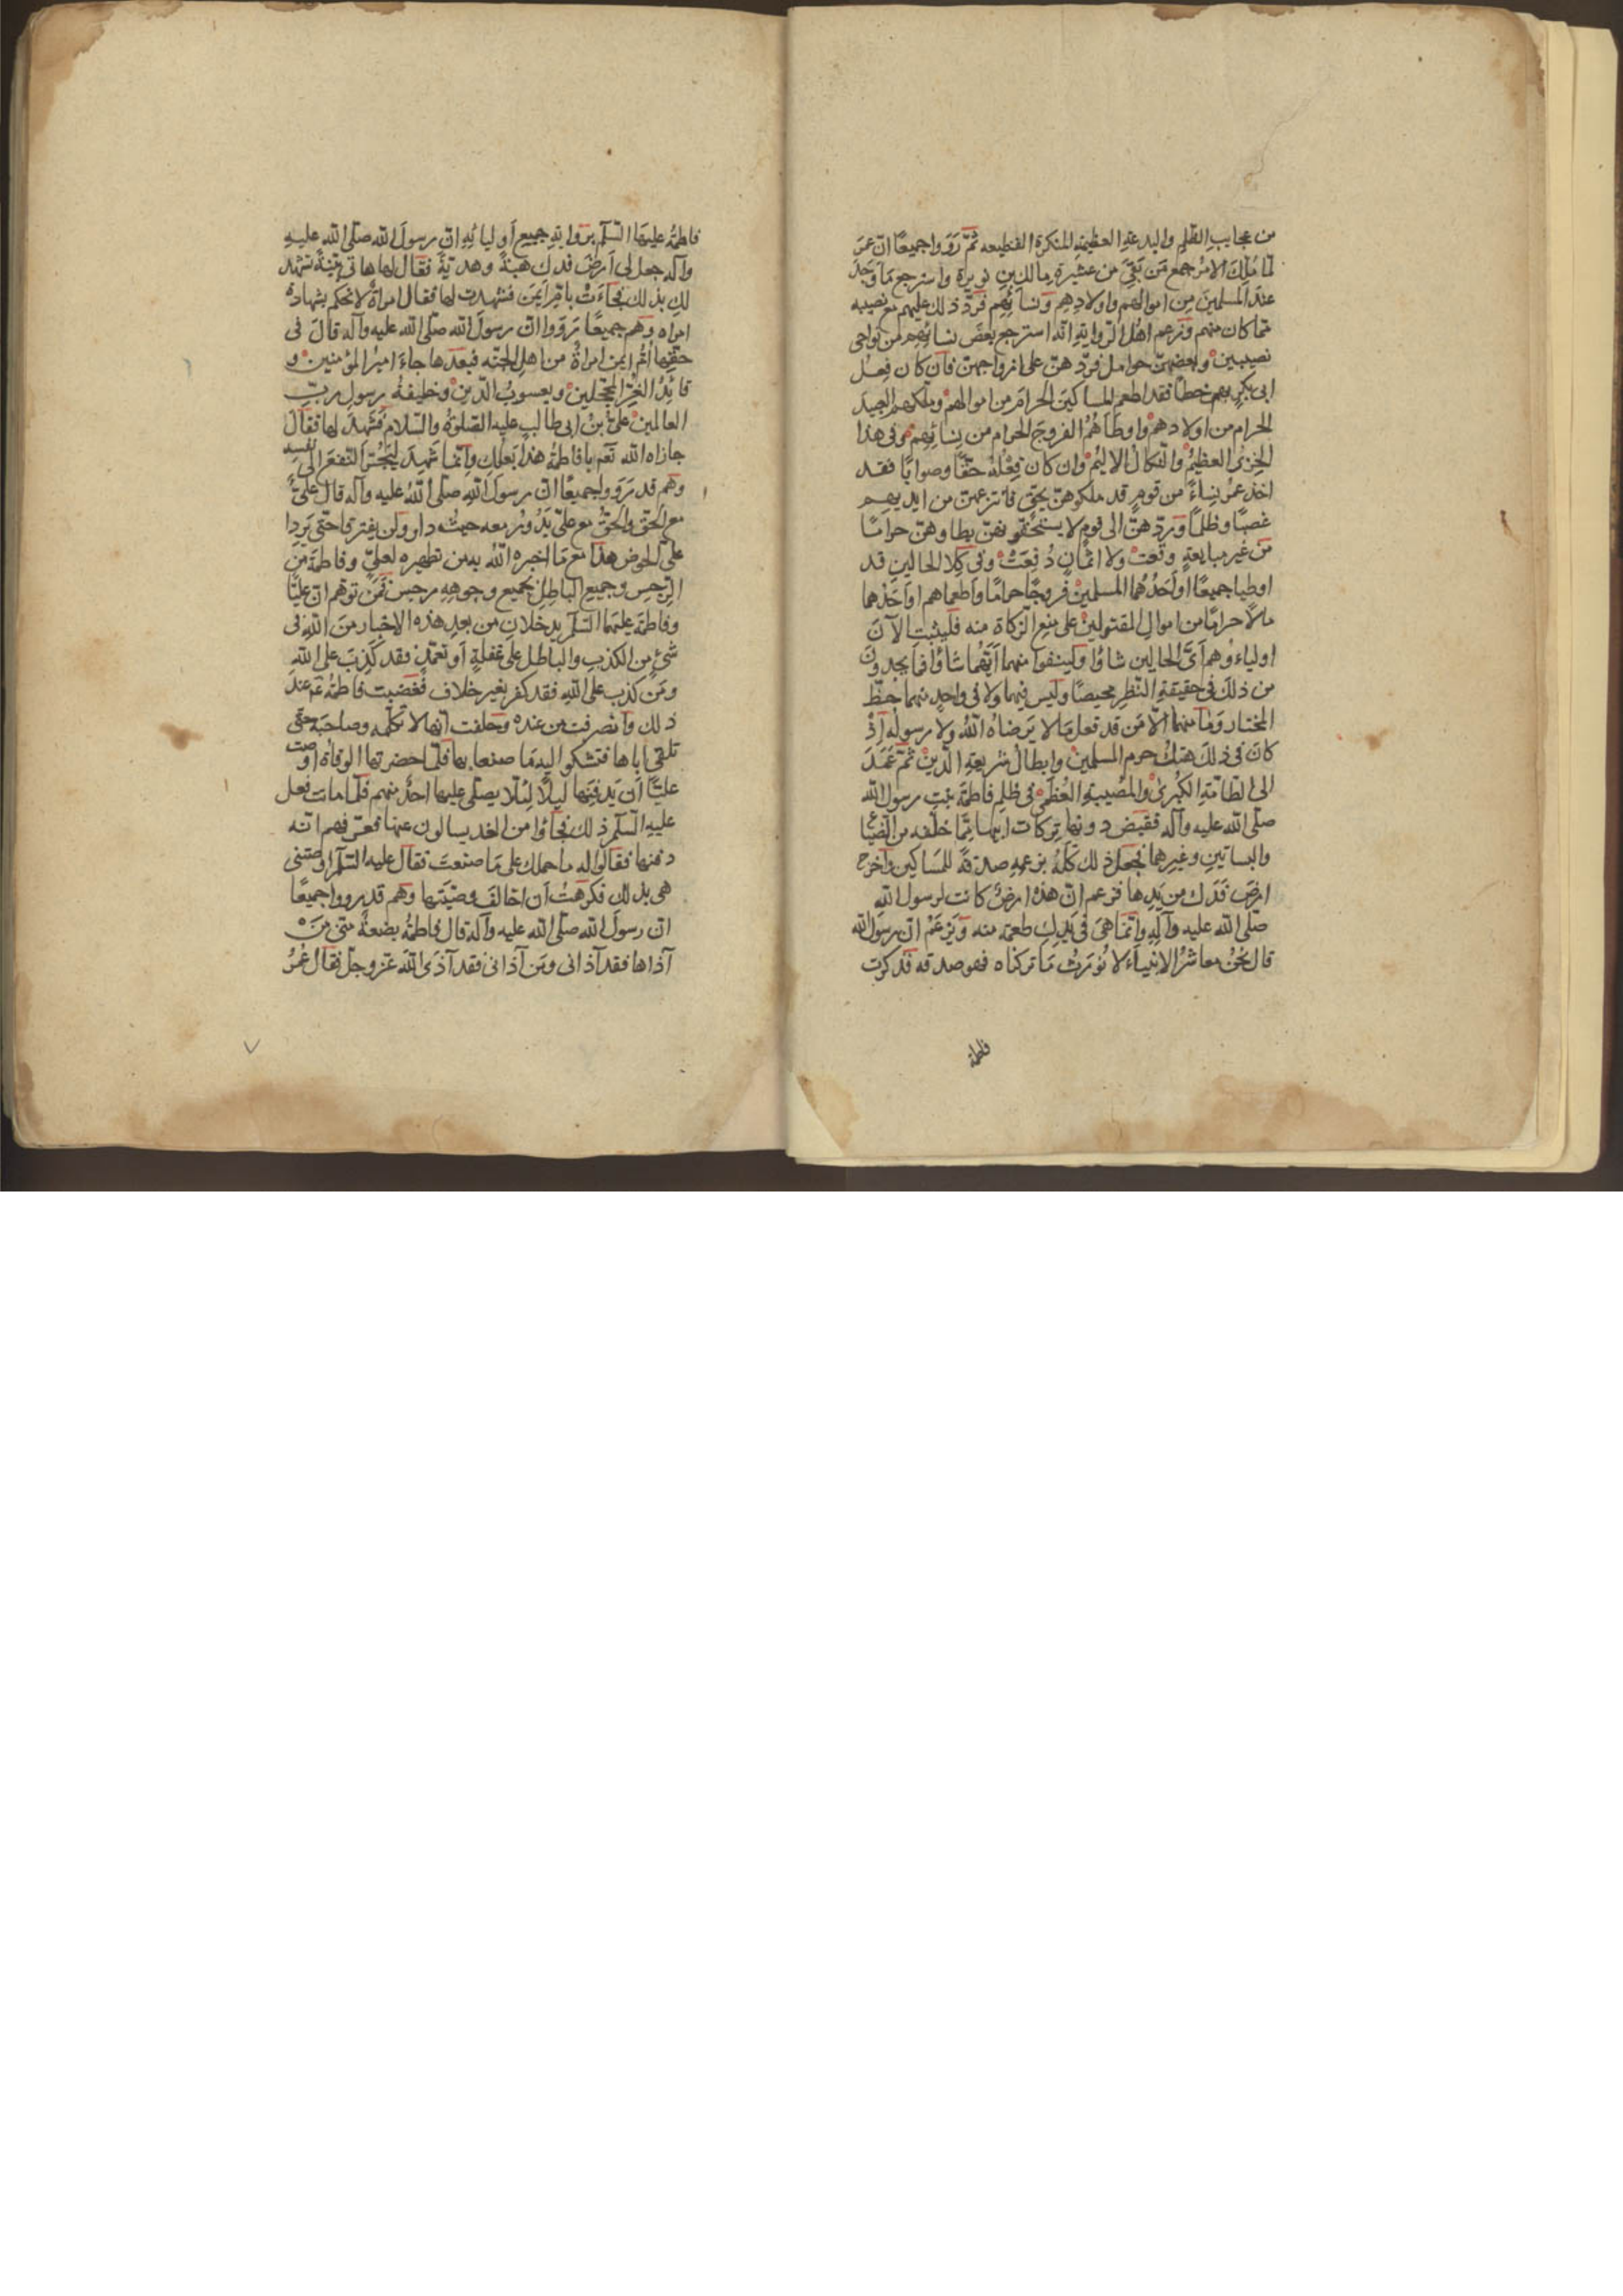 من عجايب الظلم والبدعة العظيمة المنكرة الفظيعه ثمّ رَوَوا جميعًا انّ عمَر
لمّا مُلّكَ الامرُ جمع مَن بَقِىَ من عشيرة مالك بن نويرة واسترجع مَا وَجَدَ
عند المسلمينَ مِن اموالهم واولادهم ونسآئِهم فرَدّ ذلك عليهم مع نصيبه
ممّا كان منهم وزعم اهل الرّواية انّه استرجع بعضَ نسائهم من نواحى
نصيبين وبعضهنّ حوامل فردّهنّ على ازواجهنّ فان كان فِعلُ
ابى بكرٍ بهم خطأً فقد اطعم المساكينَ الحرامَ من اموالهم وملّكهم العبيدَ
الحرام من اولادهم واوطَاهُم الفروجَ الحرام من نِسائِهم وفى هذا
الخِزىُ العظيمُ والنّكالُ الاليمُ وان كان فِعْلهُ حقًّا وصوابًا فقد
اخذ عمرُ نِساءً من قومٍ قد ملكوهنّ بحقٍّ فانتزعهنّ من ايديهم
غصبًا وظلمًا وردّهنّ الى قومٍ لا يستحقّونهنّ بطاوهنّ حرامًا
من غير مبايعةٍ وقعت ولا اثمانٍ دُفِعَتْ وفى كِلا الحالينِ قد
اوطيا جميعًا او احدُهُما المسلمين فروجًا حرامًا واطعماهم او احدهما
مالاً حرامًا من اموال المقتولينَ على منع الزكاة منه فليثبت الآنَ
اولياءوهم اىّ الحالين شاؤُا ولينفوا منهما ايّهُما شاؤُا فما يجدونَ
من ذلكَ فى حقيقةِ النّظرِ محيصًا وليس فيهما ولا فى واحدٍ منهما حظّ
المختار وما منهما الاّ مَن قد فعل مَا لا يَرضاهُ اللهُ ولا رسولهُ اِذْ
كانَ فى ذلكَ هتكُ حرم المسلمين وابطالُ شريعةِ الدّينِ ثمّ عمَدَ
الى الطّامّةِ الكُبرىٰ والمُصيبةِ العُظمىٰ فى ظلم فاطمَة بنتِ رسول الله
صلّى الله عليه وآله فقبض دونها تركات ابيها ممّا خلّفه من الضّياع
والبساتينِ وغيرهما فجعل ذلك كلّهُ بزعمهِ صدقةً للمَساكين واخرج
ارضَ فَدَك من يدها فزعم انّ هذهْ ارضٌ كانت لرسول الله
صلّى الله عليه وآلِه وانّما هىَ فى يَدِكِ طعمة منه وَيزعَمْ انّ رسوَل الله
قال نحُنُ معاشرُ الانبياءِ لا نُورَثُ مَا تركناه فهو صدقه فذكرت
فاطمة
فاطمةُ عليهَا السّلم برَوايةِ جميع أوليائِهِ انّ رسولَ الله صلّى الله عليهِ
وآله جعل لى اَرضَ فدك هبَةً وهديّةً فقال لها هاتى بيّنةً تشهد
لكِ بذلك فجاءَتْ بامِّ ايمَن فشهدت لها فقال امراةٌ لا نحكم بشهادة
امراه وهم جميعًا رَوَوا انّ رسولَ الله صلّى الله عليه وآله قالَ فى
حقّها اُمُّ ايمن امراةٌ من اهل الجنّه فبعدَها جاءَ اميرُ المؤمنين و
قائِدُ الغُرّ المحجّلين ويعسوبُ الدّين وخليفةُ رسولِ ربّ
العالمين علىُّ بنُ ابى طالب عليه الصّلوةُ والسّلام فشهدَ لها فقالَ
جازاه الله نعم يا فاطمةُ هذا بَعلكِ وانّما شهدَ ليَجُرّ النّفعَ الى نفسه
وهم قد رَوَوا جميعًا انّ رسولَ اللهِ صلّى اللهُ عليه وآله قال علىٌّ
مع الحقّ والحقُّ مع علىّ يَدُورُ معه حيثُ دار ولن يفترقا حتّى يَردا
علىّ الحوض هذا مع مَا اخبره اللهُ به من تطهيره لعلىٍّ وفاطمَة مِنَ
الرّجسِ وجميع الباطل بجميع وجوههِ رجس فمَن توهّم انّ عليًّا
وفاطمة عليهمَا السّلم يدخلان من بعدِ هذه الاخبار منَ اللهِ فى
شىءٍ من الكذبِ والباطل على غفلةٍ أو تعمّدٍ فقد كَذبَ على الله
ومَن كذب على اللهِ فقد كفر بغير خلاف فغضبت فاطمةُ ع عندَ
ذلك وانصرفت من عنده وحلفت انّها لا تكلّمه وصاحبَه حتّى
تلقى اباها فتشكو اليه مَا صنعا بها فلمّا حضرتها الوفاة اوصت
عليًّا أن يَدفِنَها ليلًا لِئلا يصلّى عليها احدٌ منهم فلمّا ماتت فعل
عليهِ السّلم ذلك فجاؤا من الغد يسالون عنها فعرّفهم انّه
دفنها فقالوا له ما حملك على مَا صنعتَ فقال عليه السّلم اوصتنى
هى بذلك فكرهتُ أن اخالفَ وصيّتَها وهم قد رووا جميعًا
انّ رسولَ الله صلّى الله عليه وآله قال فاطمةُ بضعةٌ منّى مَن
آذاها فقد آذانى ومَن آذانى فقد آذى الله عزّ وجلّ فقال عُمرُ